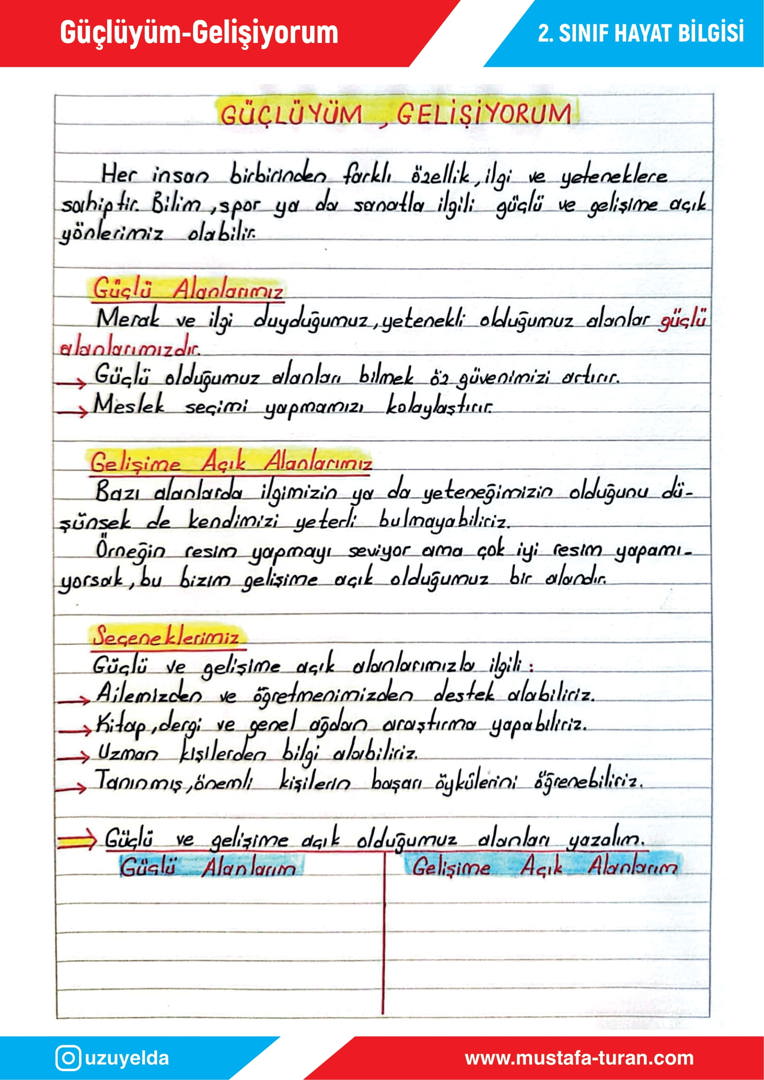 Güçlüyüm-Gelişiyorum
2. SINIF HAYAT BİLGİSİ
GÜÇLÜYÜM , GELİŞİYORUM
Her insan birbirinden farklı özellik, ilgi ve yeteneklere
sahiptir. Bilim, spor ya da sanatla ilgili güçlü ve gelişime açık
yönlerimiz olabilir.
Güçlü Alanlarımız
Merak ve ilgi duyduğumuz, yetenekli olduğumuz alanlar güçlü
alanlarımızdır.
→ Güçlü olduğumuz alanları bilmek öz güvenimizi artırır.
→ Meslek seçimi yapmamızı kolaylaştırır.
Gelişime Açık Alanlarımız
Bazı alanlarda ilgimizin ya da yeteneğimizin olduğunu dü-
şünsek de kendimizi yeterli bulmayabiliriz.
Örneğin resim yapmayı seviyor ama çok iyi resim yapamı-
yorsak, bu bizim gelişime açık olduğumuz bir alandır.
Seçeneklerimiz
Güçlü ve gelişime açık alanlarımızla ilgili :
→ Ailemizden ve öğretmenimizden destek alabiliriz.
→ Kitap, dergi ve genel ağdan araştırma yapabiliriz.
→ Uzman kişilerden bilgi alabiliriz.
→ Tanınmış, önemli kişilerin başarı öykülerini öğrenebiliriz.
⇒ Güçlü ve gelişime açık olduğumuz alanları yazalım.
Güçlü Alanlarım
Gelişime Açık Alanlarım
uzuyelda
www.mustafa-turan.com